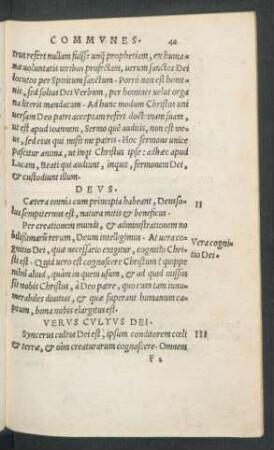 COMMVNES. 42
trus refert nullam fuisse unq̃ prophetiam, ex huma
na uoluntatis uiribus profectam, uerum sanctos Dei
locutos per Spiritum sanctum. Porrò non est homi
nis, sed solius Dei Verbum, per homines uelut orga
na literis mandatum. Ad hunc modum Christus uni
uersam Deo patri acceptam refert doctrinam suam,
ut est apud Ioannem, Sermo quẽ audistis, non est me
us, sed eius qui misit me patris. Hoc sermone unice
pascitur anima, ut inqt Christus ipse: adhæc apud
Lucam, Beati qui audiunt, inquit, sermonem Dei,
& custodiunt illum.
DEVS.
Cætera omnia cum principia habeant, Deus so- II
lus sempiternus est, natura mitis & beneficus.
Per creationem mundi, & administrationem no
bilissimarũ rerum, Deum intelligimus. At uera co- Vera cogni
gnitio Dei, quæ necessario exigitur, cognitio Chri- tio Dei.
sti est. Quid uero est cognoscere Christum? quippe
nihil aliud, quàm in quem usum, & ad quid missus
sit nobis Christus, à Deo patre, quo cum tam innu-
merabiles diuitias, & quæ superant humanum ca-
ptum, bona nobis elargitus est.
VERVS CVLTVS DEI.
Syncerus cultus Dei est, ipsum conditorem cœli III
& terræ, & oĩm creaturarum cognoscere. Omnem
F 2